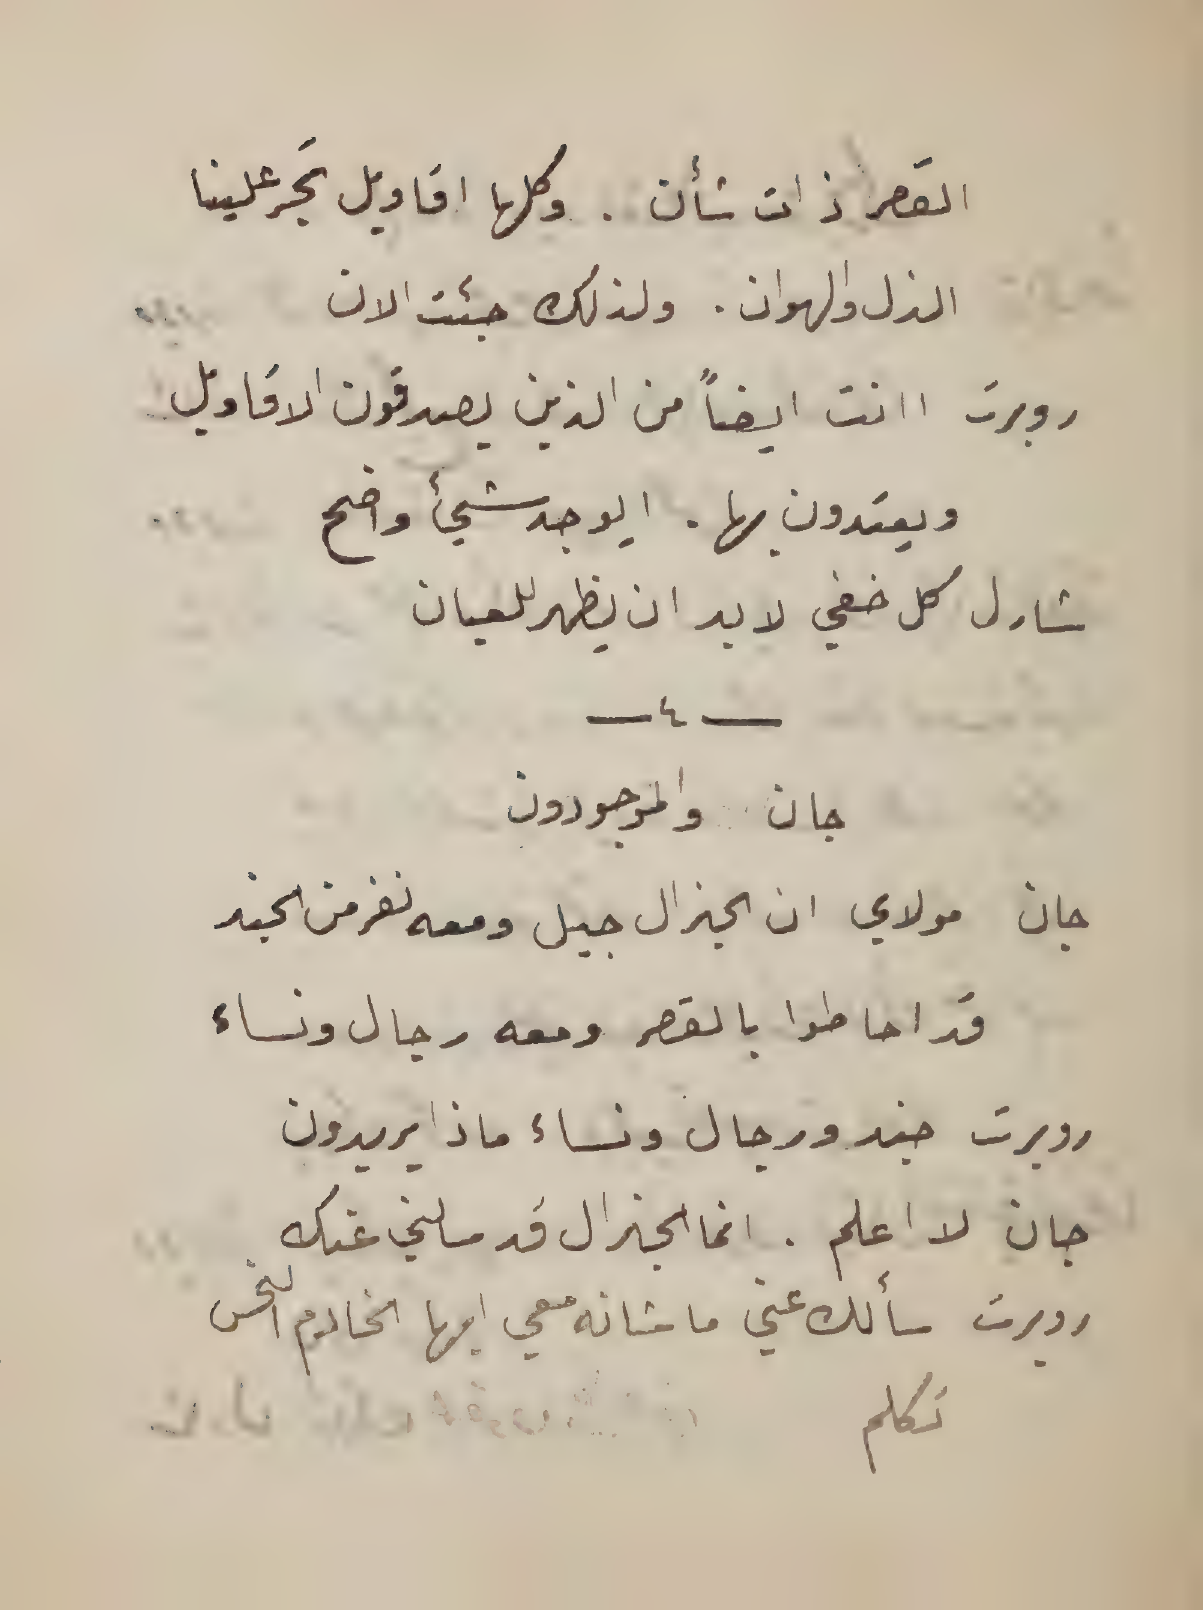 القصر ذات شأن . وكلها اقاويل تجر علينا
الذل والهوان . ولذلك جئت الان
روبرت اانت ايضاً من الذين يصدقون الاقاويل
ويعتدون بها . ايوجد شيئأ واضح
شارل كل خفي لابد ان يظهر للعيان
— ٤ —
جان والموجودون
جان مولاي ان الجنرال جيل ومعه نفر من الجند
قد احاطوا بالقصر ومعه رجال ونساء
روبرت جند ورجال ونساء ماذا يريدون
جان لا اعلم . انما الجنرال قد سالني عنك
روبرت سألك عني ما شانه معي ايها الخادم النحس
تكلم